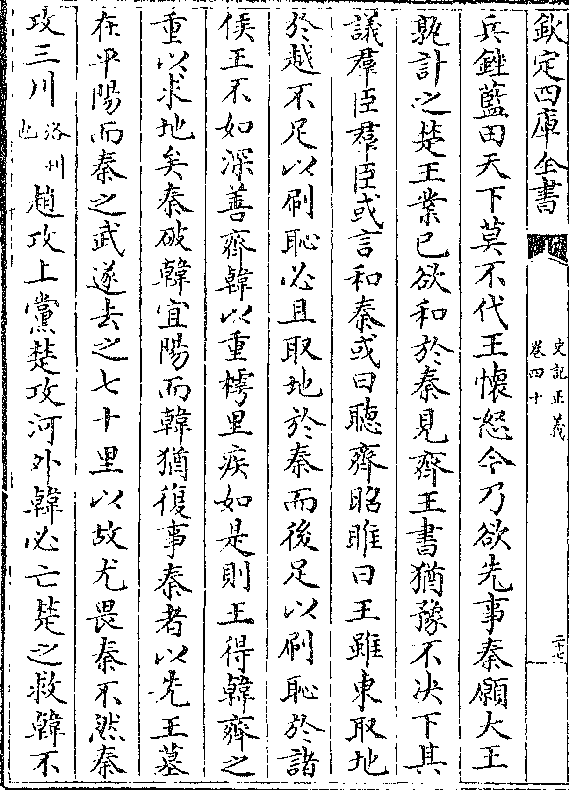 欽定四庫全書
史記正義
卷四十
二十七
兵銼藍田天下莫不代王懷怒今乃欲先事秦願大王
孰計之楚王業已欲和於秦見齊王書猶豫不決下其
議羣臣羣臣或言和秦或曰聽齊昭雎曰王雖東取地
於越不足以刷恥必且取地於秦而後足以刷恥於諸
侯王不如深善齊韓以重樗里疾如是則王得韓齊之
重以求地矣秦破韓宜陽而韓猶復事秦者以先王墓
在平陽而秦之武遂去之七十里以故尤畏秦不然秦
攻三川洛州也趙攻上黨楚攻河外韓必亡楚之救韓不